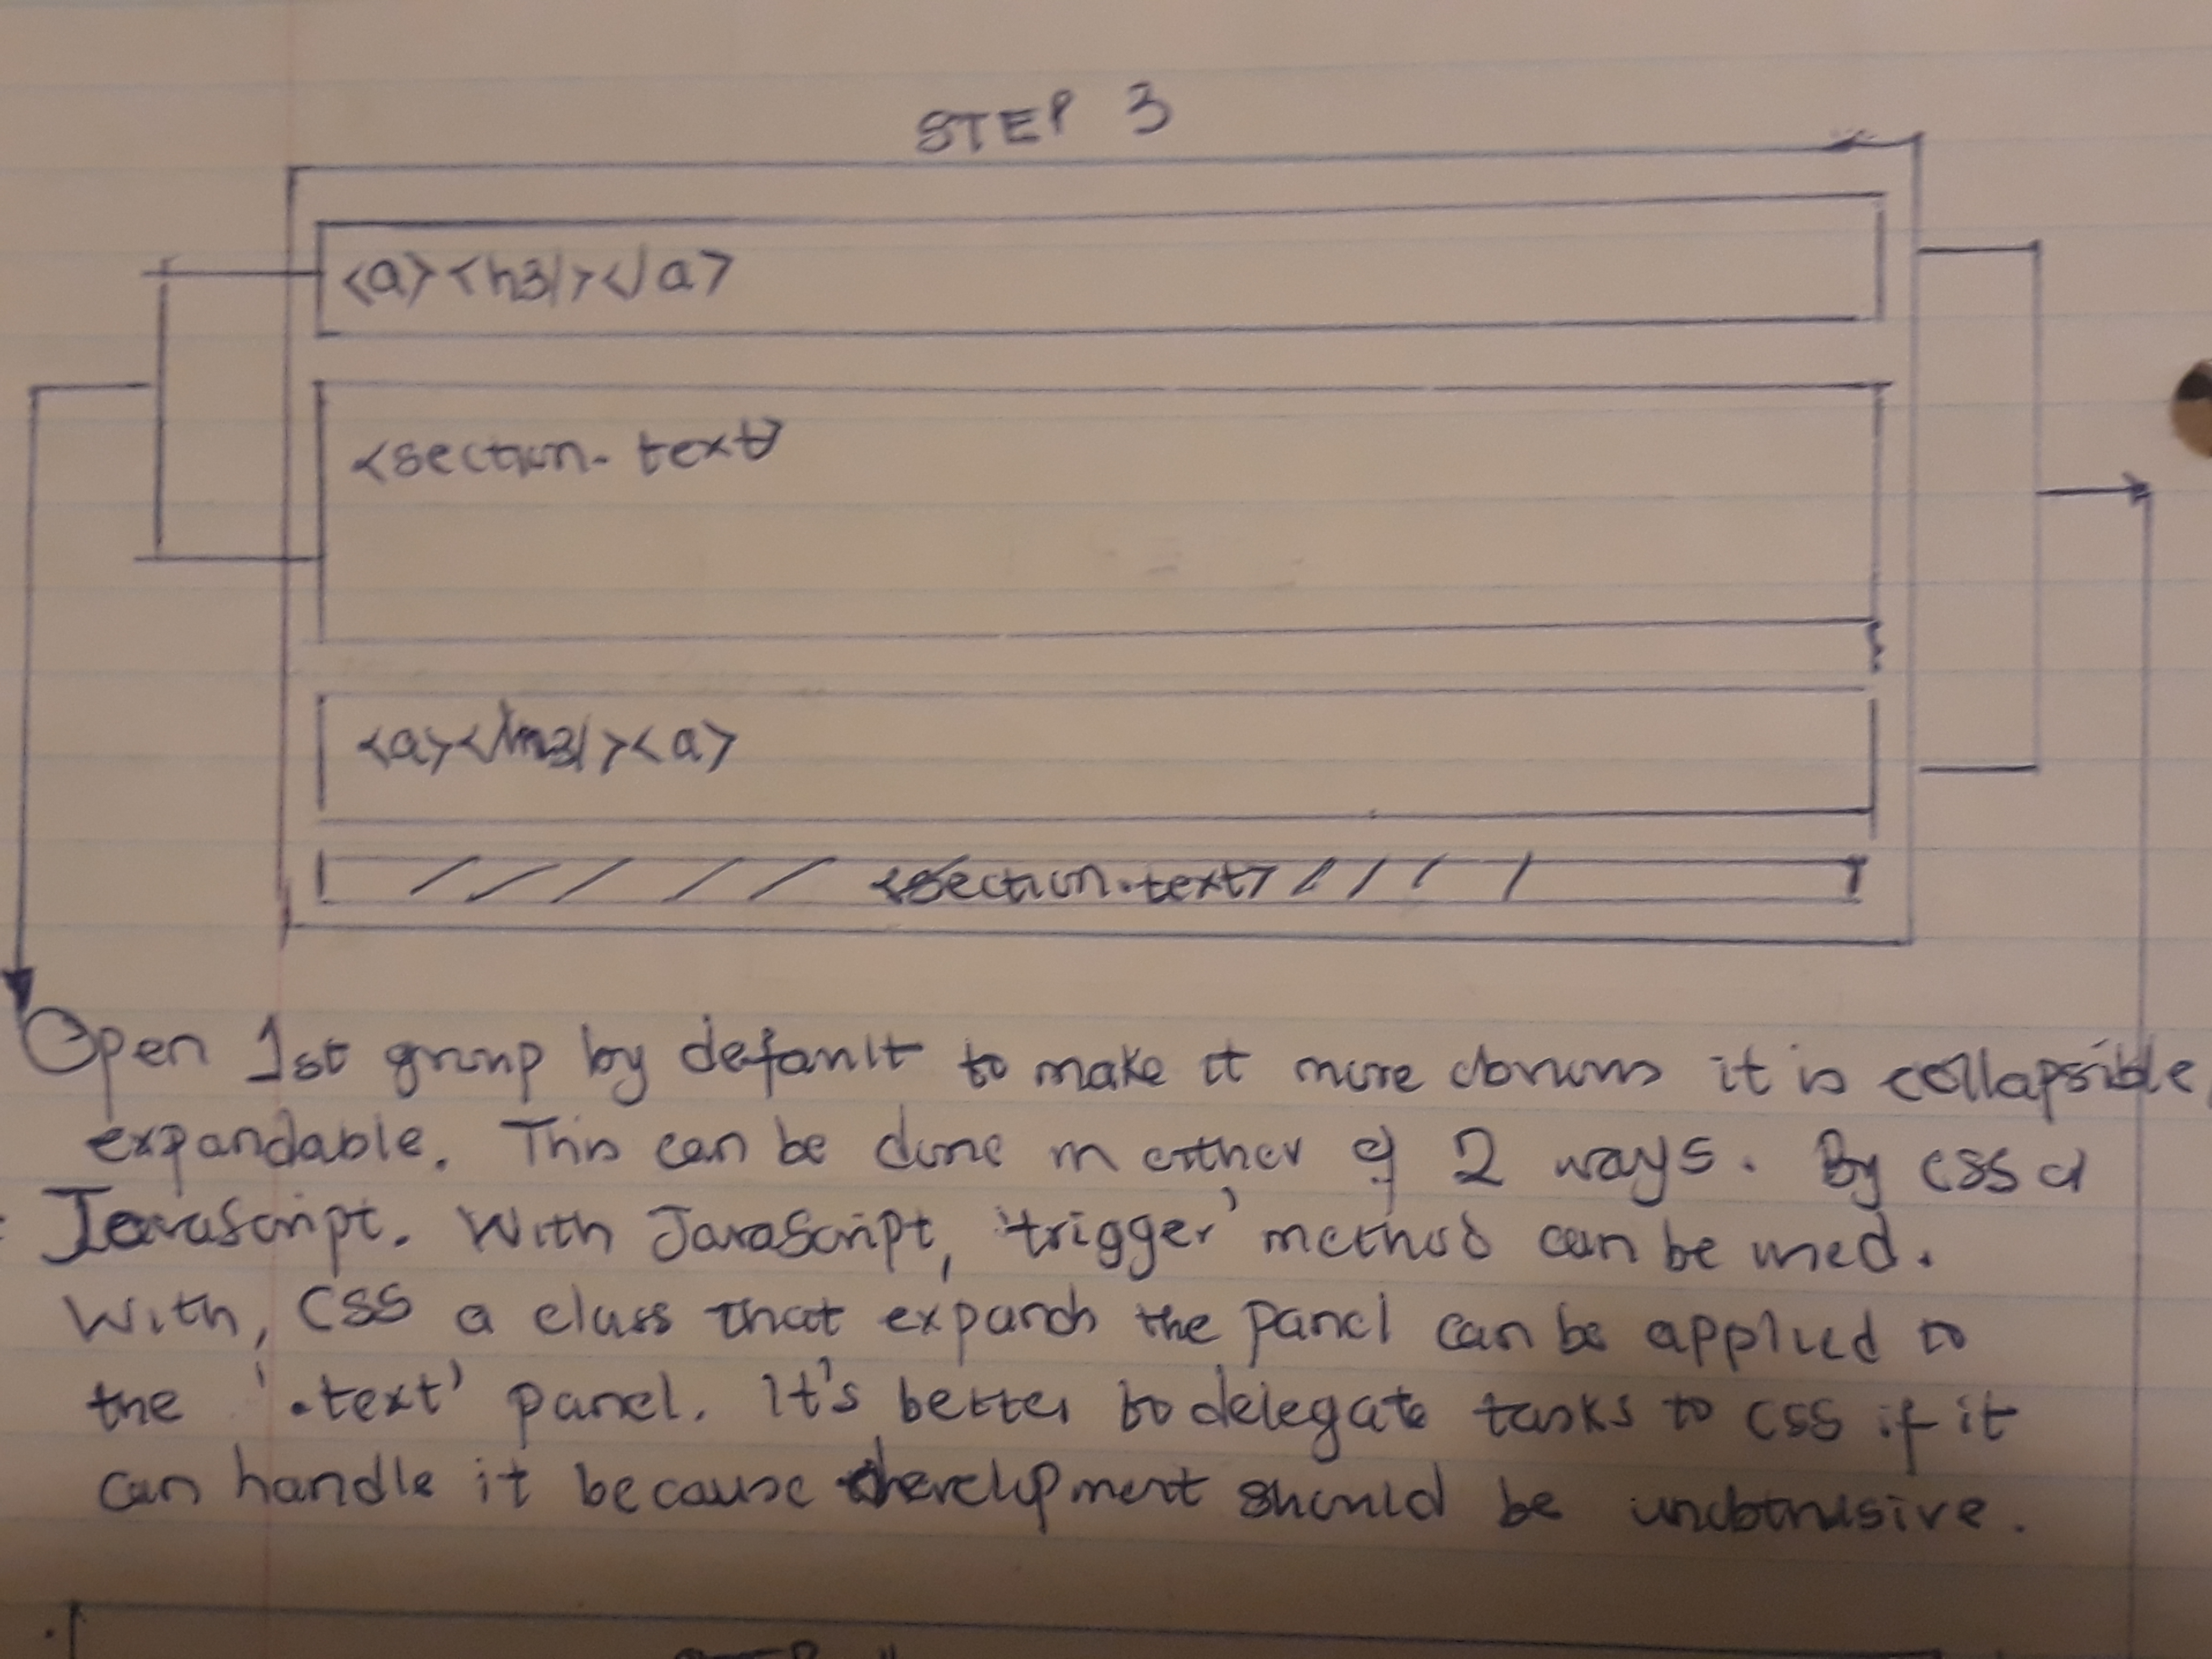 STEP 3
<a><h3/></a>
<section.text>
<a><h3/><a>
<section.text>
Open 1st group by default to make it more obvious it is collapsible,
expandable. This can be done in either of 2 ways. By CSS or
JavaScript. With JavaScript, 'trigger' method can be used.
With, CSS a class that expands the panel can be applied to
the '.text' panel. It's better to delegate tasks to CSS if it
can handle it because development should be unobtrusive.